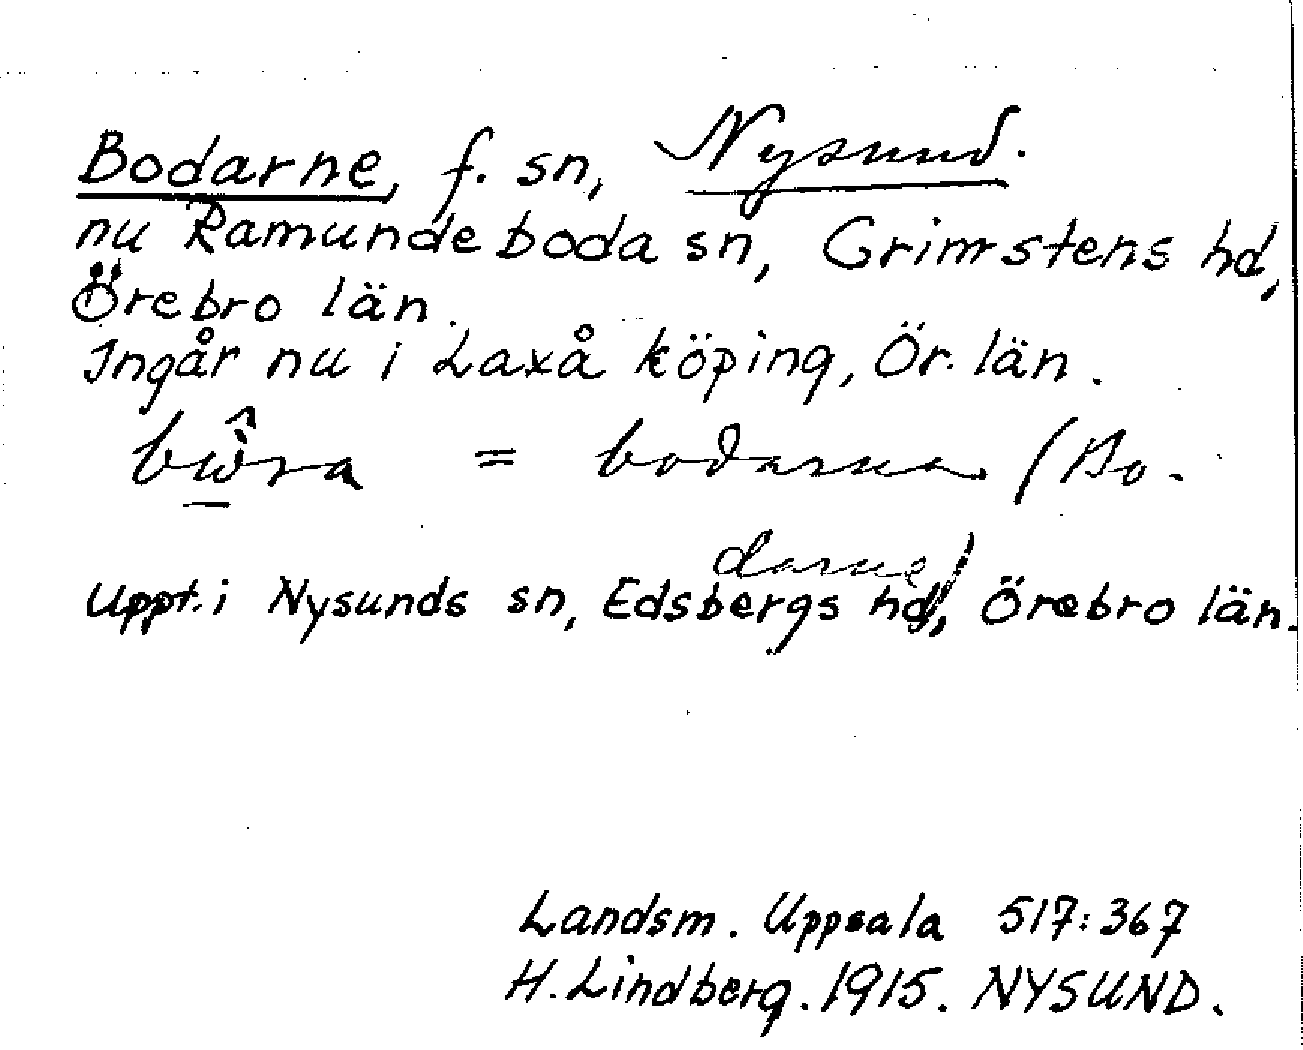 Bodarne, f. sn, Nysund.
nu Ramundeboda sn, Grimstens hd,
Örebro län.
Ingår nu i Laxå köping, Ör. län.
= bodarna (Bo-
darne)
Uppt. i Nysunds sn, Edsbergs hd, Örebro län.
Landsm. Uppsala 517:367
H. Lindberg. 1915. NYSUND.